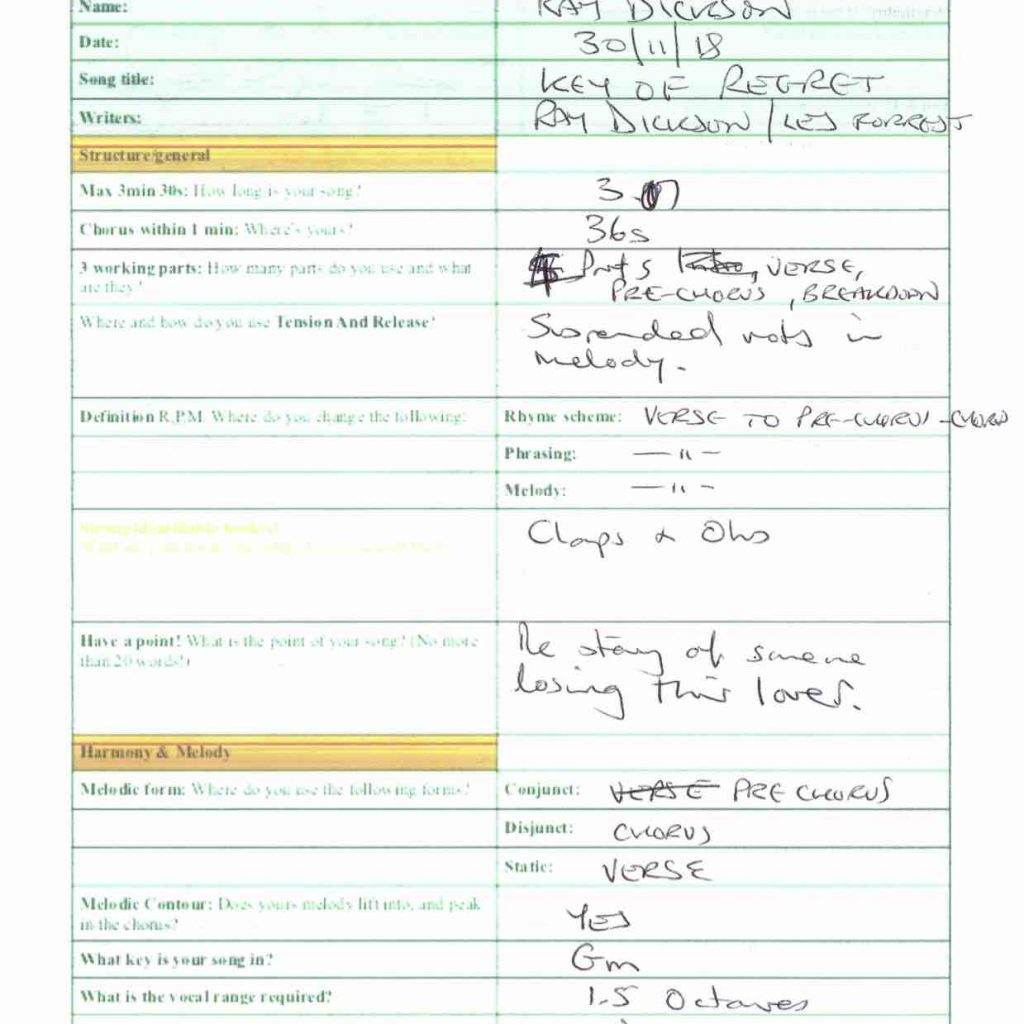 Name: RAY DICKSON
Date: 30/11/18
Song title: KEY OF REGRET
Writers: RAY DICKSON / LES FORREST
Structure/general
Max 3min 30s: How long is your song? 3.07
Chorus within 1 min: Where's yours? 36s
3 working parts: How many parts do you use and what Parts VERSE,
are they? PRE-CHORUS, BREAKDOWN
Where and how do you use Tension And Release? Suspended nots in
melody.
Definition R.P.M. Where do you change the following: Rhyme scheme: VERSE TO PRE-CHORUS - CHORUS
Phrasing: — 11 —
Melody: — 11 —
Strong identifiable hook(s)
Claps & Ohs
Have a point! What is the point of your song? (No more The story of someone
than 20 words!) losing their lover.
Harmony & Melody
Melodic form: Where do you use the following forms? Conjunct: VERSE PRE CHORUS
Disjunct: CHORUS
Static: VERSE
Melodic Contour: Does yours melody lift into, and peak
in the chorus? YES
What key is your song in? Gm
What is the vocal range required? 1.5 Octaves